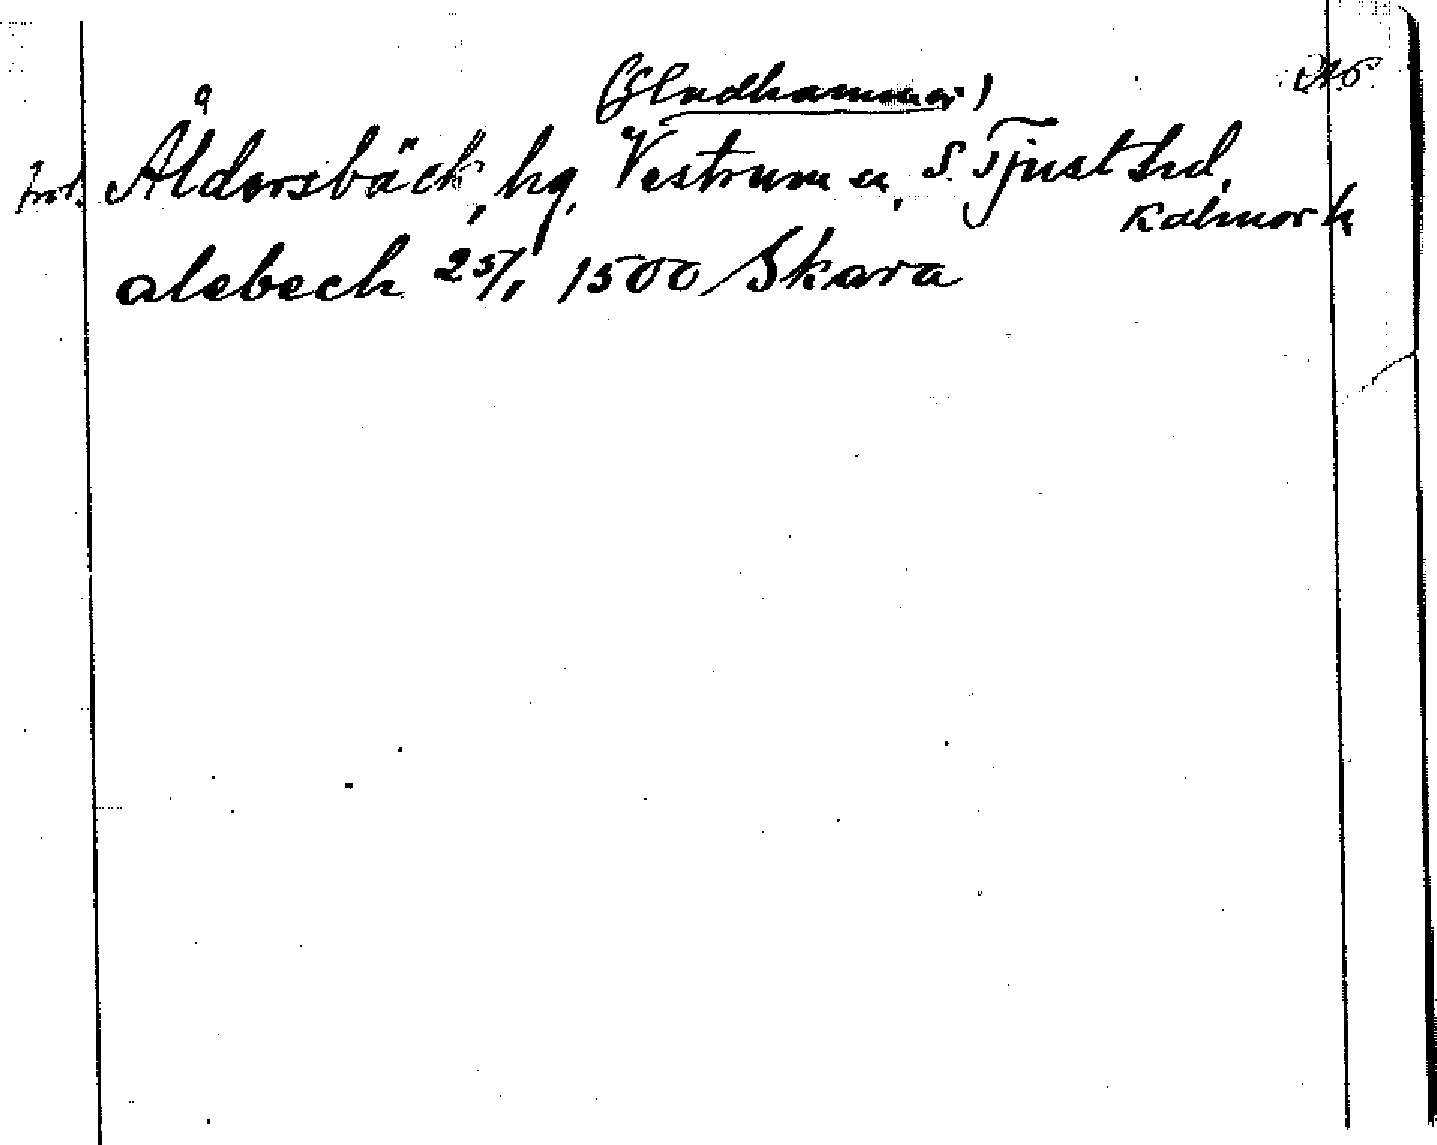 (Gladhammar)
Åldersbäck, hg, Vestrum sn, S. Tjust hd,
Kalmar l.
alebech 25/1 1500 Skara